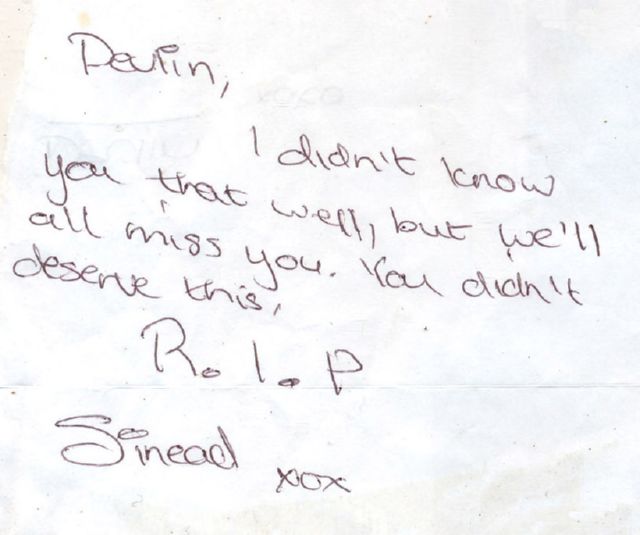 Devlin,
I didn't know
you that well, but we'll
all miss you. You didn't
deserve this,
R.I.P
Sinead xox